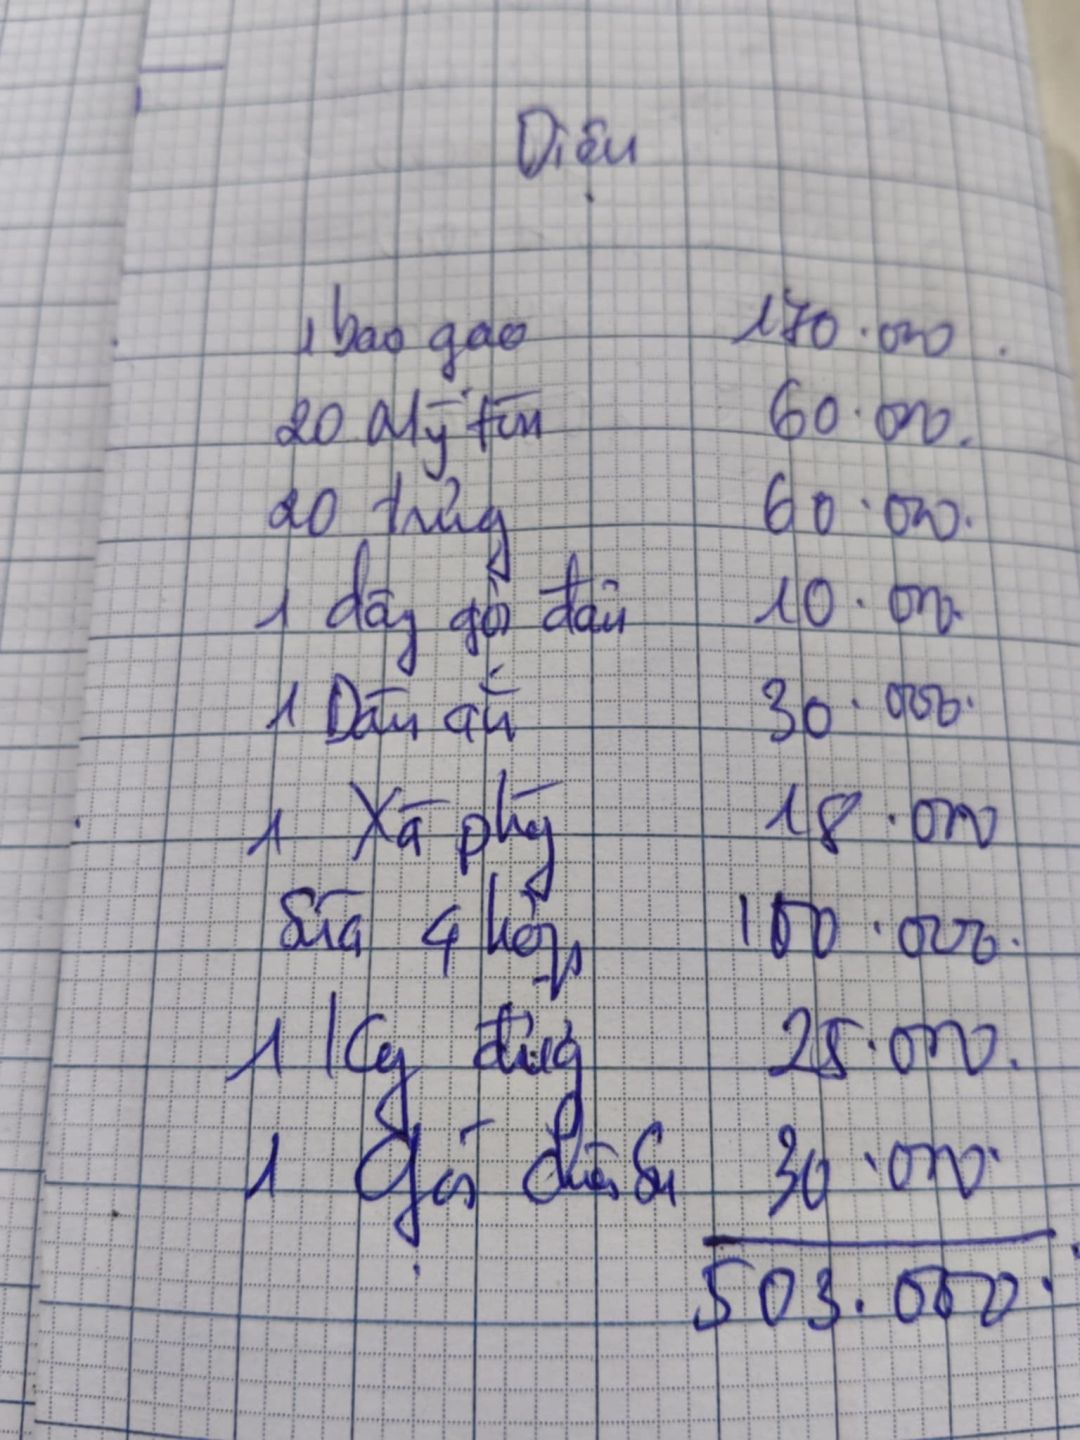 Diệu
1 bao gạo 170.000
20 Mỳ tôm 60.000
20 trứng 60.000
1 dây gội đầu 10.000
1 Dầu ăn 30.000
1 Xà phg 18.000
Sữa 4 hộp 100.000
1 Kg đường 25.000
1 Gói 30.000
503.000